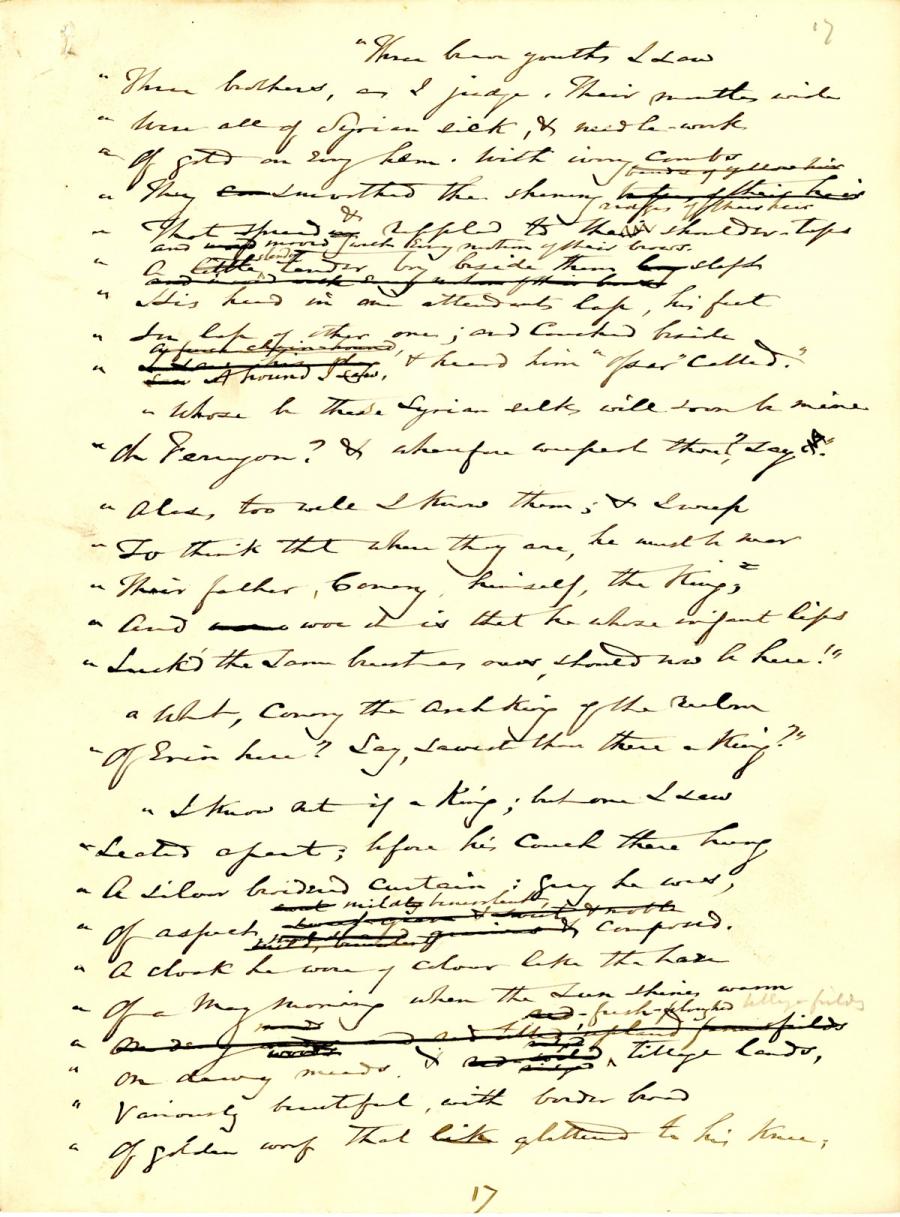 17
"Three brave youths I saw
" Three brothers, as I judge. Their mantles wide
" Were all of Syrian silk, & needle-work
" Of gold on every hem. With ivory combs
bands of yellow hair
" They smoothed the shining ridges of their hair
" That spread & rippled to their shoulder-tops
and moved with every motion of their brows.
" A slender tender boy beside them slept
and moved with every motion of their brows
" His head in one attendant's lap, his feet
" In lap of other one; and couched beside
" A hound I saw, & heard him "Ossar" called."
" Whose be these Syrian silks will soon be mine
" Oh Ferragon? & wherefore weepest thou? say."
" Alas, too well I know them; & I weep
" To think that where they are, he must be near
" Their father, Conary, himself, the King;
" And woe it is that he whose infant lips
" Suck'd the same breast as ours, should now be here!"
" What, Conary the Arch-King of the realm
" Of Erin here? Say, sawest thou there a King?"
" I know not if a King; but one I saw
" Seated apart; before his couch there hung
" A silver broidered curtain; grey he was,
mildly benevolent,
" Of aspect & composed.
" A cloak he wore of colour like the haze
" Of a May morning when the sun shines warm
fresh-ploughed tillage fields
" On dewy meads & tillage lands,
" Variously beautiful, with border broad
" Of golden woof that glittered to his knee;
17